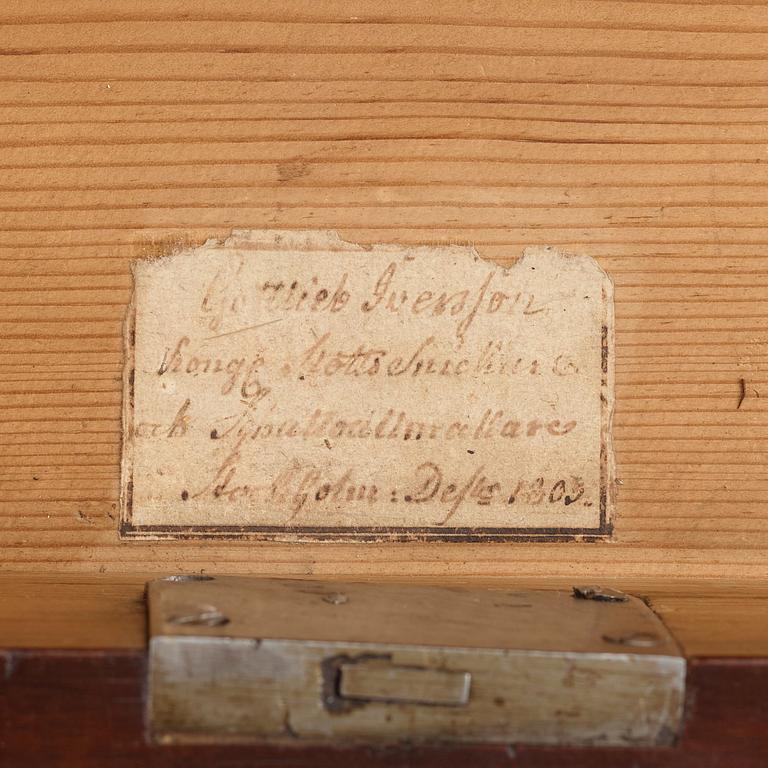 Gottlieb Iversson
Kongl Slotts Snickare
och
Stockholm: Des 1803.